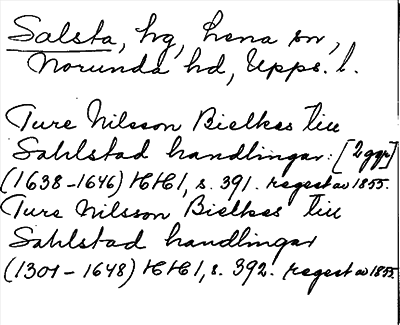 Salsta, hg, Lena sn,
Norunda hd, Upps. l.
Ture Nilsson Bielkes till
Sahlstad handlingar: [2 ggr]
(1638-1646) HH 1, s. 391. regest av 1855.
Ture Nilsson Bielkes till
Sahlstad handlingar
(1301-1648) HH 1, s. 392. regest av 1855.